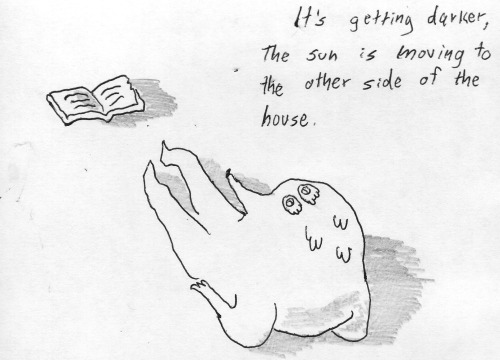 It's getting darker,
The sun is moving to
the other side of the
house.